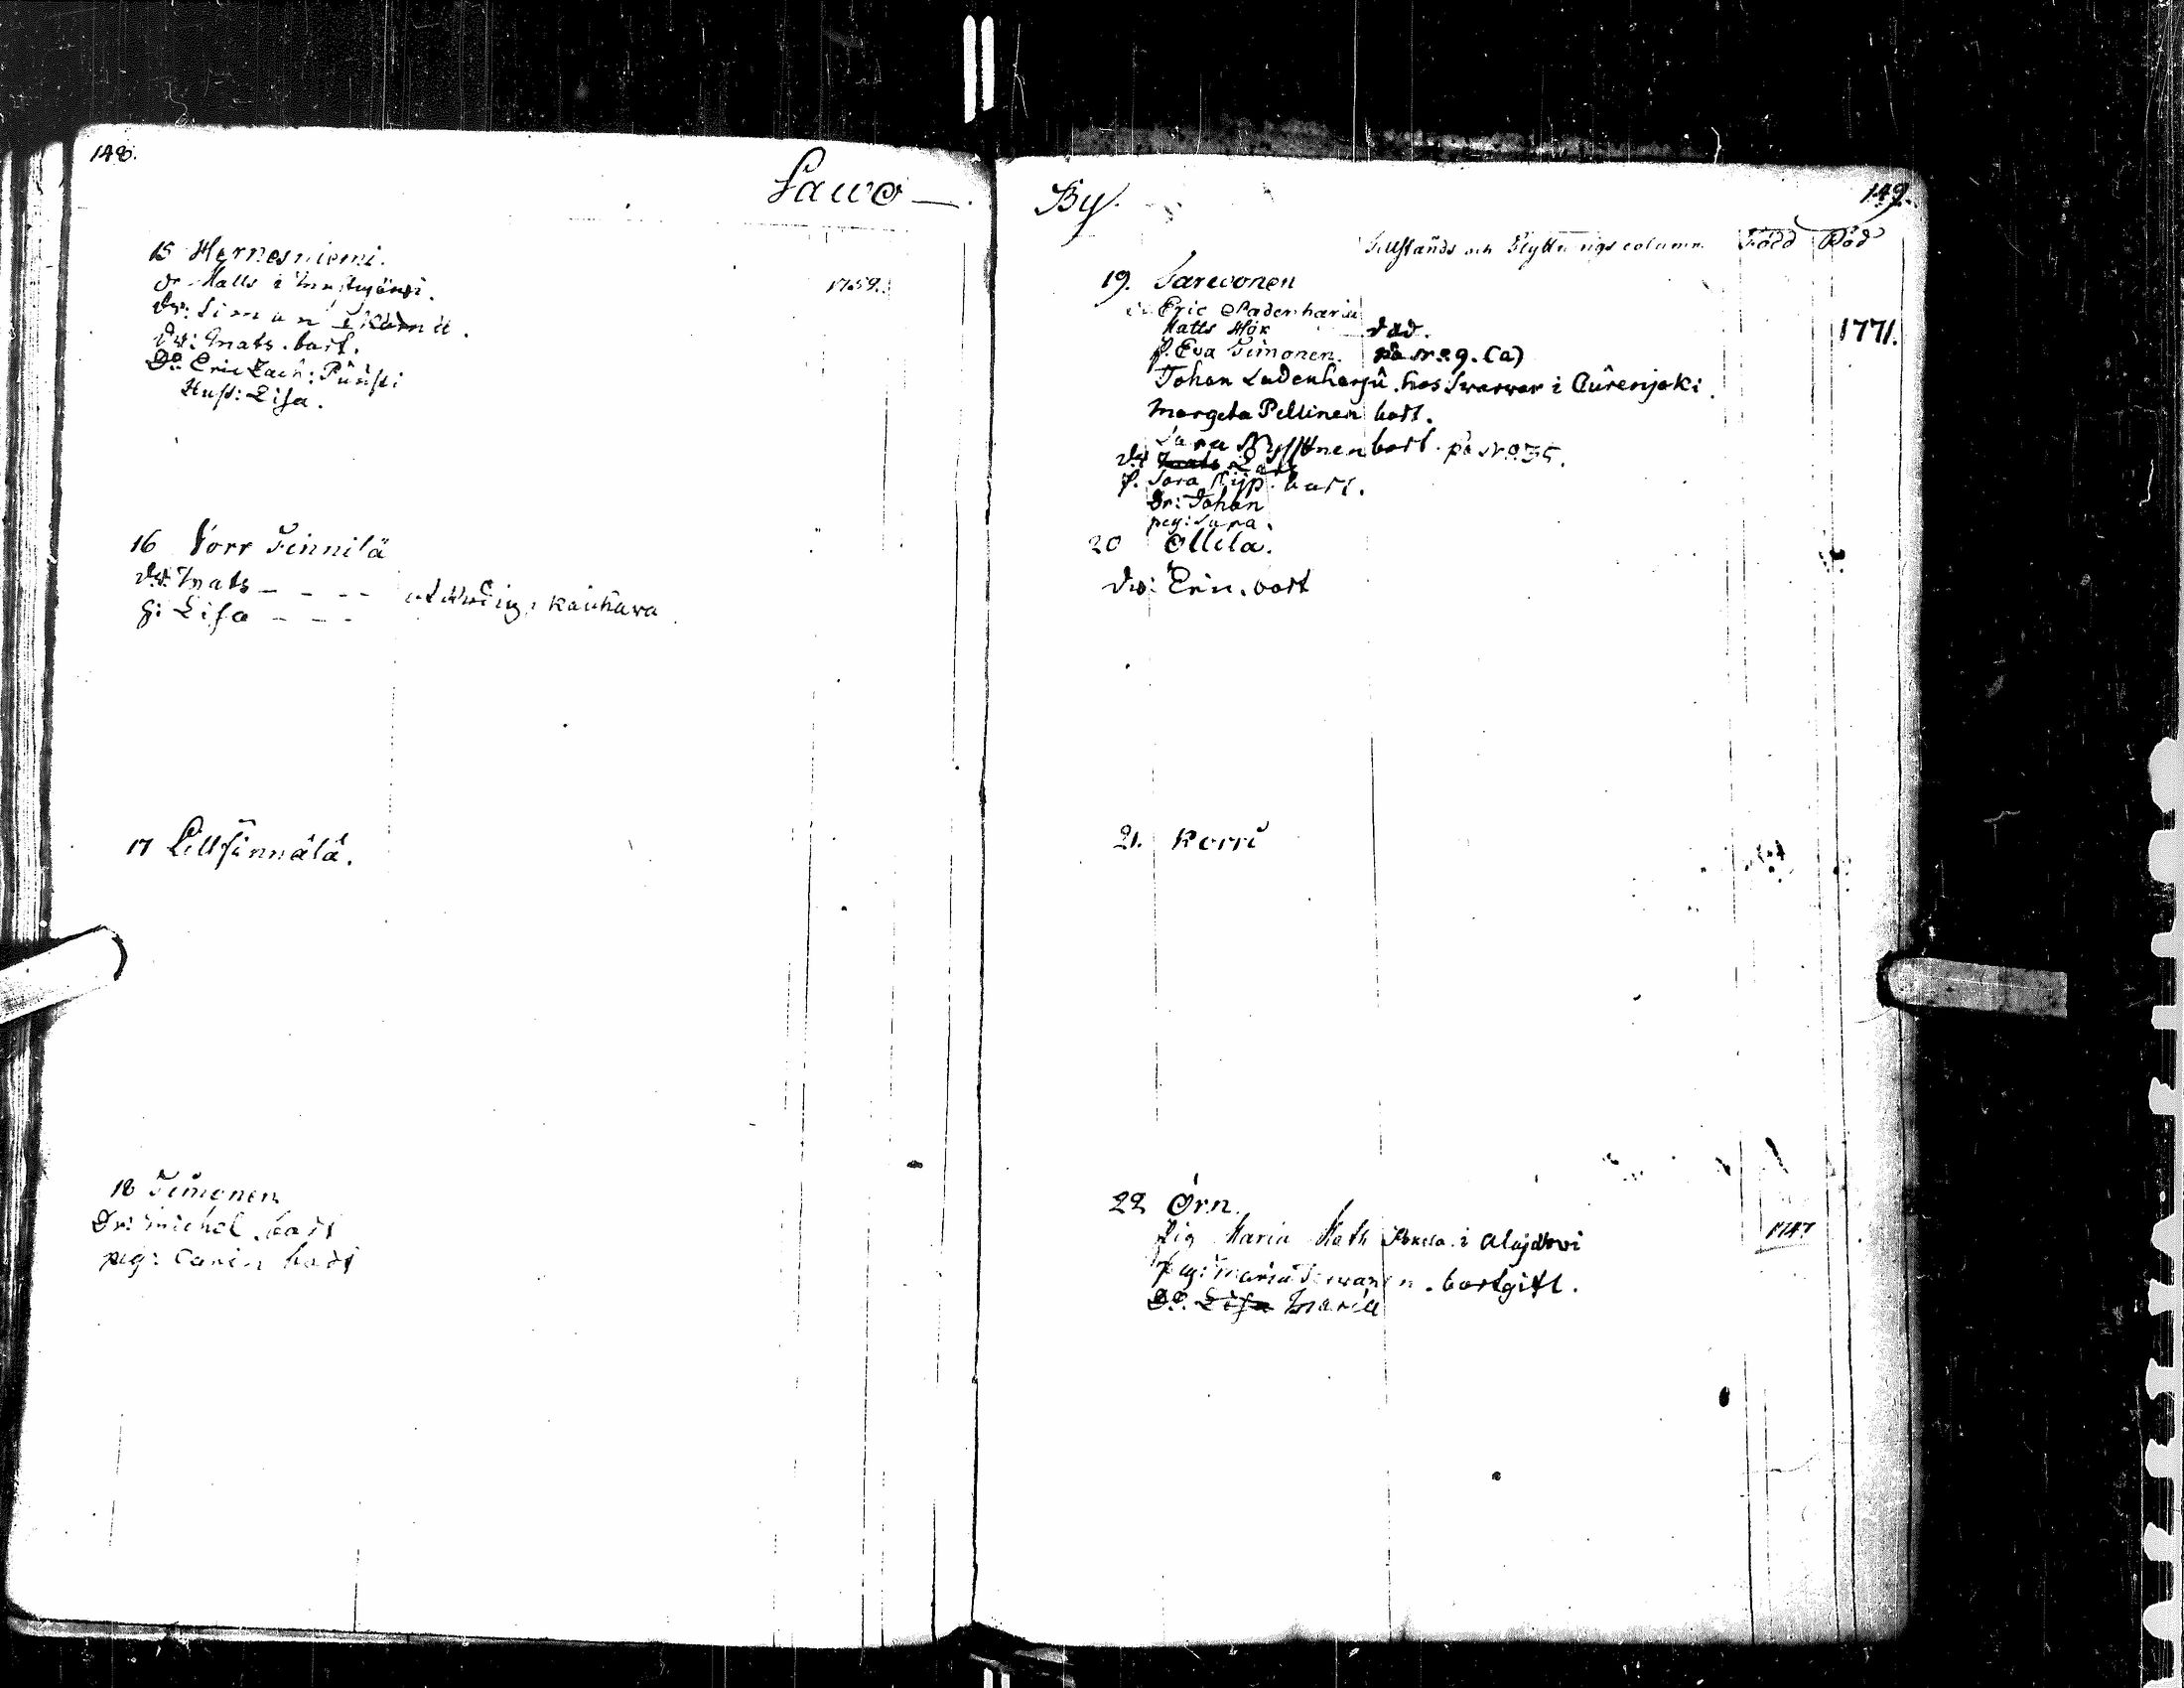 148.
Sawo —
15 Hernesniemi.
dr Matts i 1759.
dr: Simon i
dr: Mats. bort.
Do Eric Zach:
Hust: Lisa.
16 Storr Finnilä
dr: Mats — — — —
h: Lisa — — — Kauhava
17 Lillfinnälä.
18 Timonen
Dr: Michel. bort
pig: Carin bort
By.
149.
Tillstånds och Flyttnings column Född Död
19. Sarwonen
Eric Ladenharju
Matts Hök död. 1771.
p. Eva Simonen. på No. 9. (a)
Johan Ladenharju. hos Swarwar i Aûrenjoki.
Margeta Pellinen bort.
Sara bort. på No 35.
dr Mats Lars
p. Sara bort.
Dr: Johan
pig: Sara.
20 Ollila.
dr: Eric. bort
21. Korri
22 Örn.
pig Maria Math i Alajärwi 1747
pig: Maria bortgift.
Do. Lisa Maria